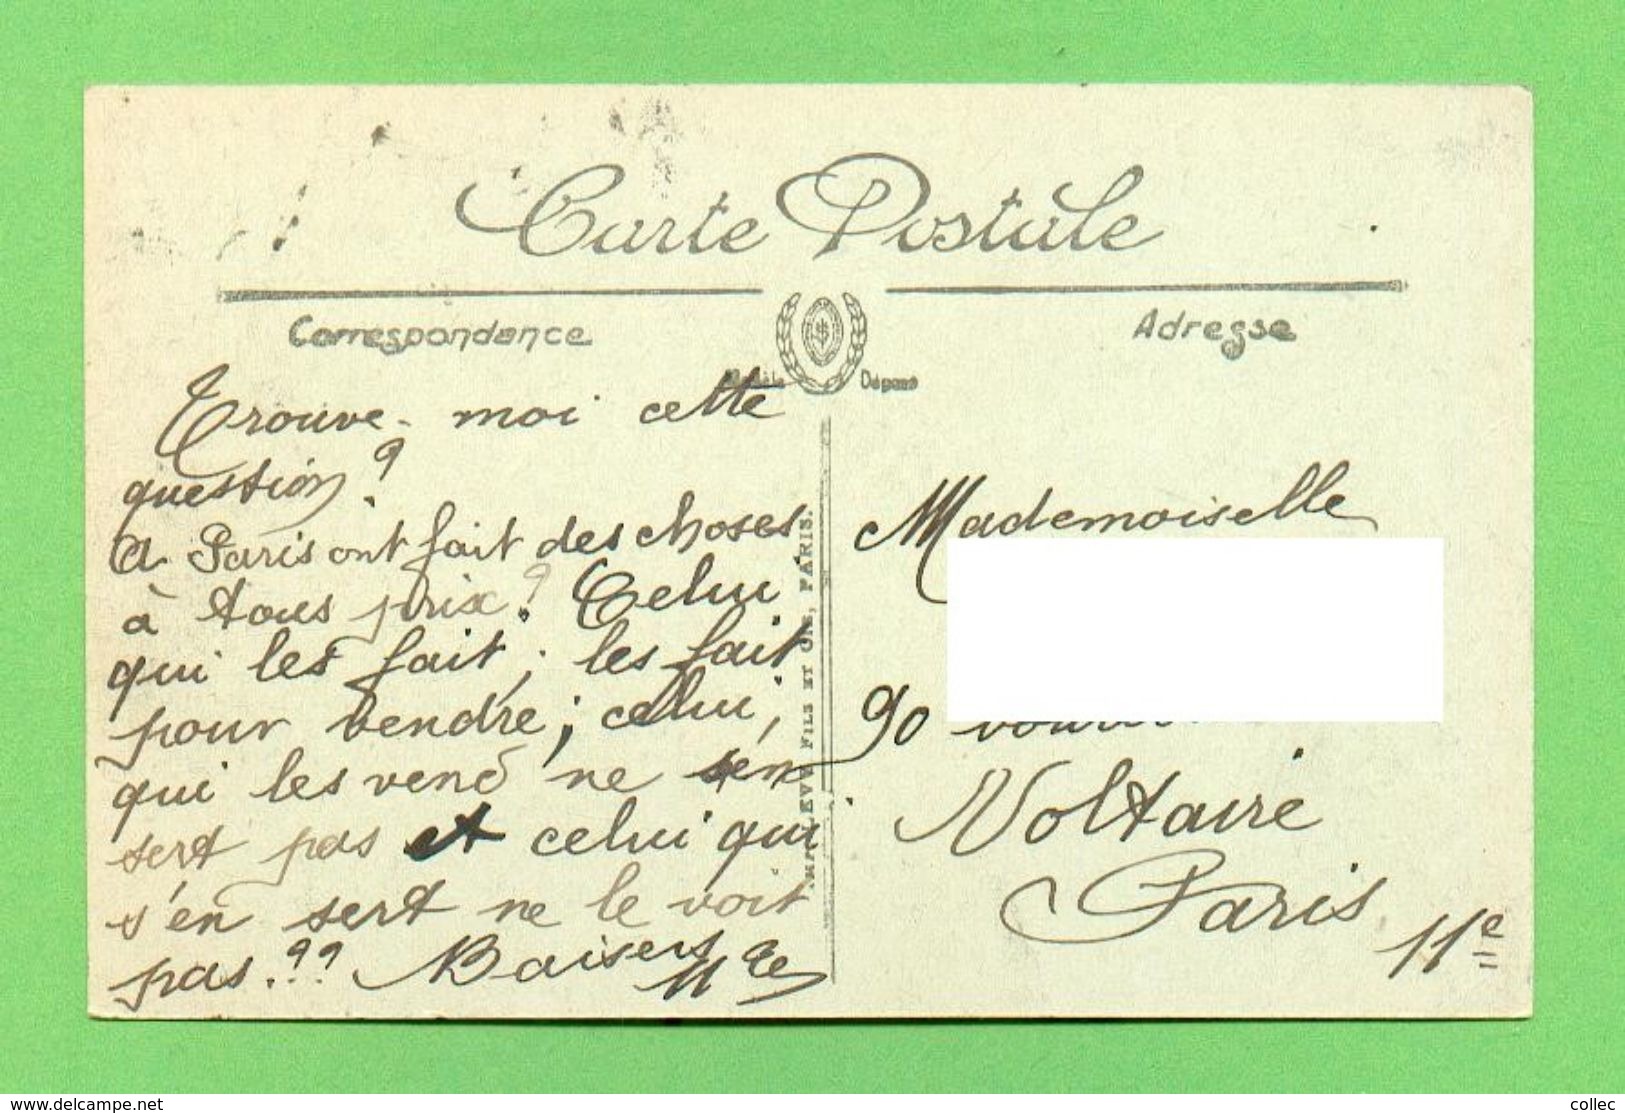 Carte Postale
Correspondance
Adresse
Déposé
Trouve-moi cette
question?
A Paris ont fait des choses
à tous prix? Celui
qui les fait; les fait
pour vendre; celui,
qui les vend ne s'en
sert pas et celui qui
s'en sert ne le voit
pas.?? Baisers
FILS ET CIE, PARIS.
Mademoiselle
90
Voltaire
Paris 11e
www.delcampe.net
collec